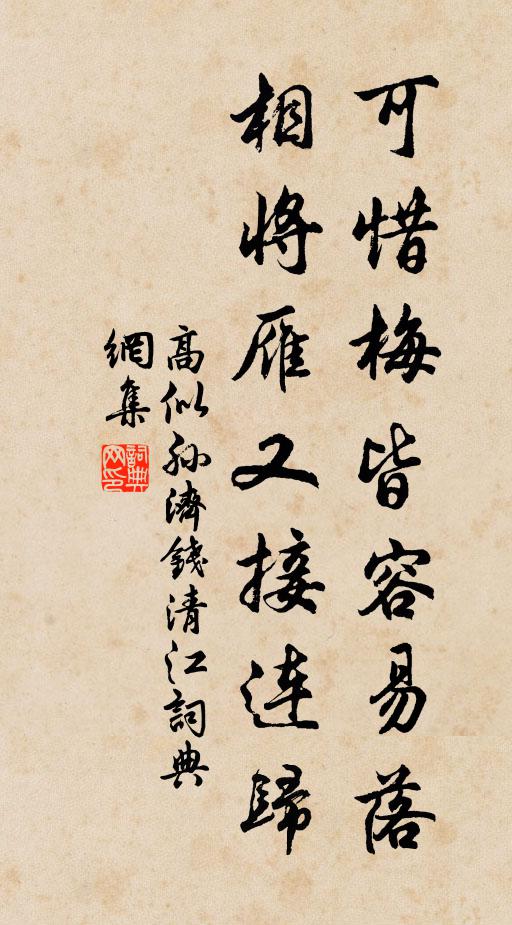 可惜梅皆容易落
相將雁又接連歸
高似孫濟錢清江詞典
網集
詞典
网印